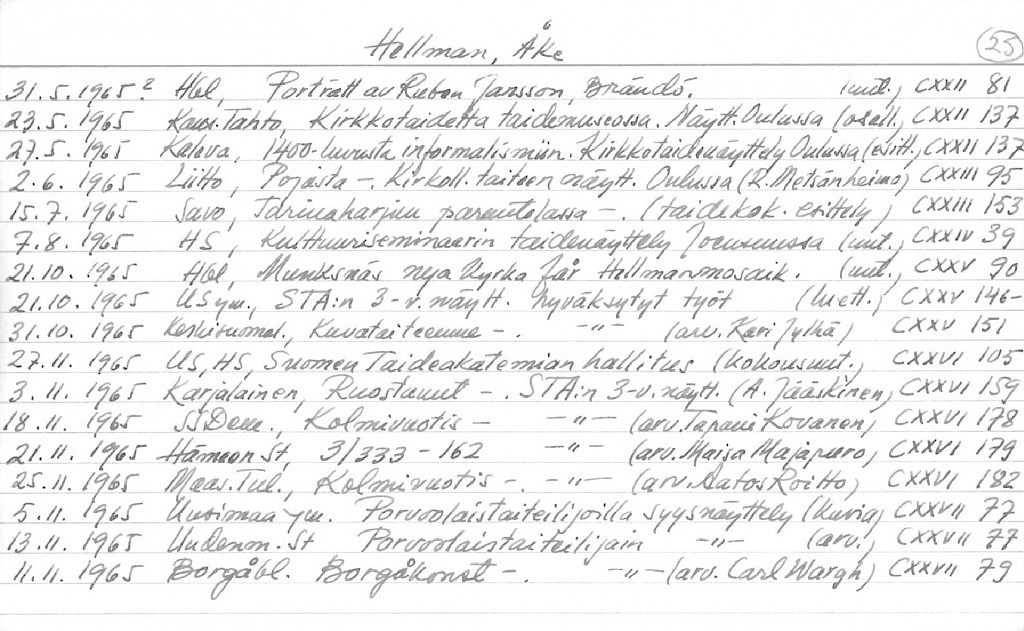 Hellman, Åke
(25)
31.5.1965? Hbl, Porträtt av Ruben Jansson, Brändö. (uut., CXXII 81
23.5.1965 Kans.Tahto, Kirkkotaidetta taidemuseossa. Näytt. Oulussa (osall., CXXII 137
27.5.1965 Kaleva, 1400-luvusta informalismiin. Kirkkotaidenäyttely Oulussa (esitt., CXXII 137
2.6.1965 Liitto, Pojasta -. Kirkoll. taiteen näytt. Oulussa (R. Metsänheimo) CXXIII 95
15.7.1965 Savo, Tarinaharjun parantolassa -. (taidekok. esittely, CXXIII 153
7.8.1965 HS, Kulttuuriseminaarin taidenäyttely Joensuussa (uut., CXXIV 39
21.10.1965 Hbl, Munksnäs nya kyrka får Hellmanmosaik. (uut., CXXV 90
21.10.1965 US ym., STA:n 3-v. näytt. hyväksytyt työt (luett., CXXV 146-
31.10.1965 Keskisuomal., Kuvataiteemme -. -"- (arv. Kari Jylhä) CXXV 151
27.11.1965 US, HS, Suomen Taideakatemian hallitus (kokousuut., CXXVI 105
3.11.1965 Karjalainen, Ruostunut -. STA:n 3-v. näytt. (A. Jääskinen, CXXVI 159
18.11.1965 SSDem., Kolmivuotis - -"- (arv. Tapani Kovanen, CXXVI 178
21.11.1965 Hämeen St, 3/333 - 162 -"- (arv. Maija Majapuro, CXXVI 179
25.11.1965 Maas.Tul., Kolmivuotis -. -"- (arv. Aatos Roitto, CXXVI 182
5.11.1965 Uusimaa ym. Porvoolaistaiteilijoilla syysnäyttely (kuvia, CXXVII 77
13.11.1965 Uudenm. St Porvoolaistaiteilijain -"- (arv., CXXVII 77
11.11.1965 Borgåbl. Borgåkonst -. -"- (arv. Carl Wargh) CXXVII 79